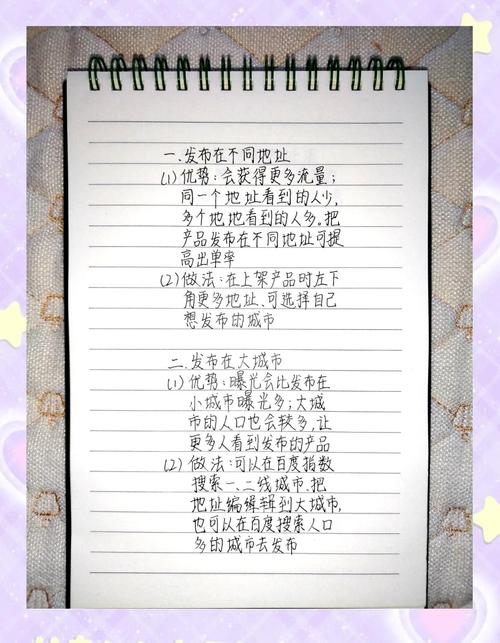 一.发布在不同地址
(1)优势:会获得更多流量;
同一个地址看到的人少,
多个地地看到的人多。把
产品发布在不同地址可提
高出单率
(2)做法:在上架产品时左下
角更多地址、可选择自己
想发布的城市
二.发布在大城市
(1)优势:曝光会比发布在
小城市曝光多;大城
市的人口也会较多,让
更多人看到发布的产品
(2)做法:可以在百度指数
搜索一、二线城市.把
地址编缉辑到大城市,
也可以在百度搜索人口
多的城市去发布